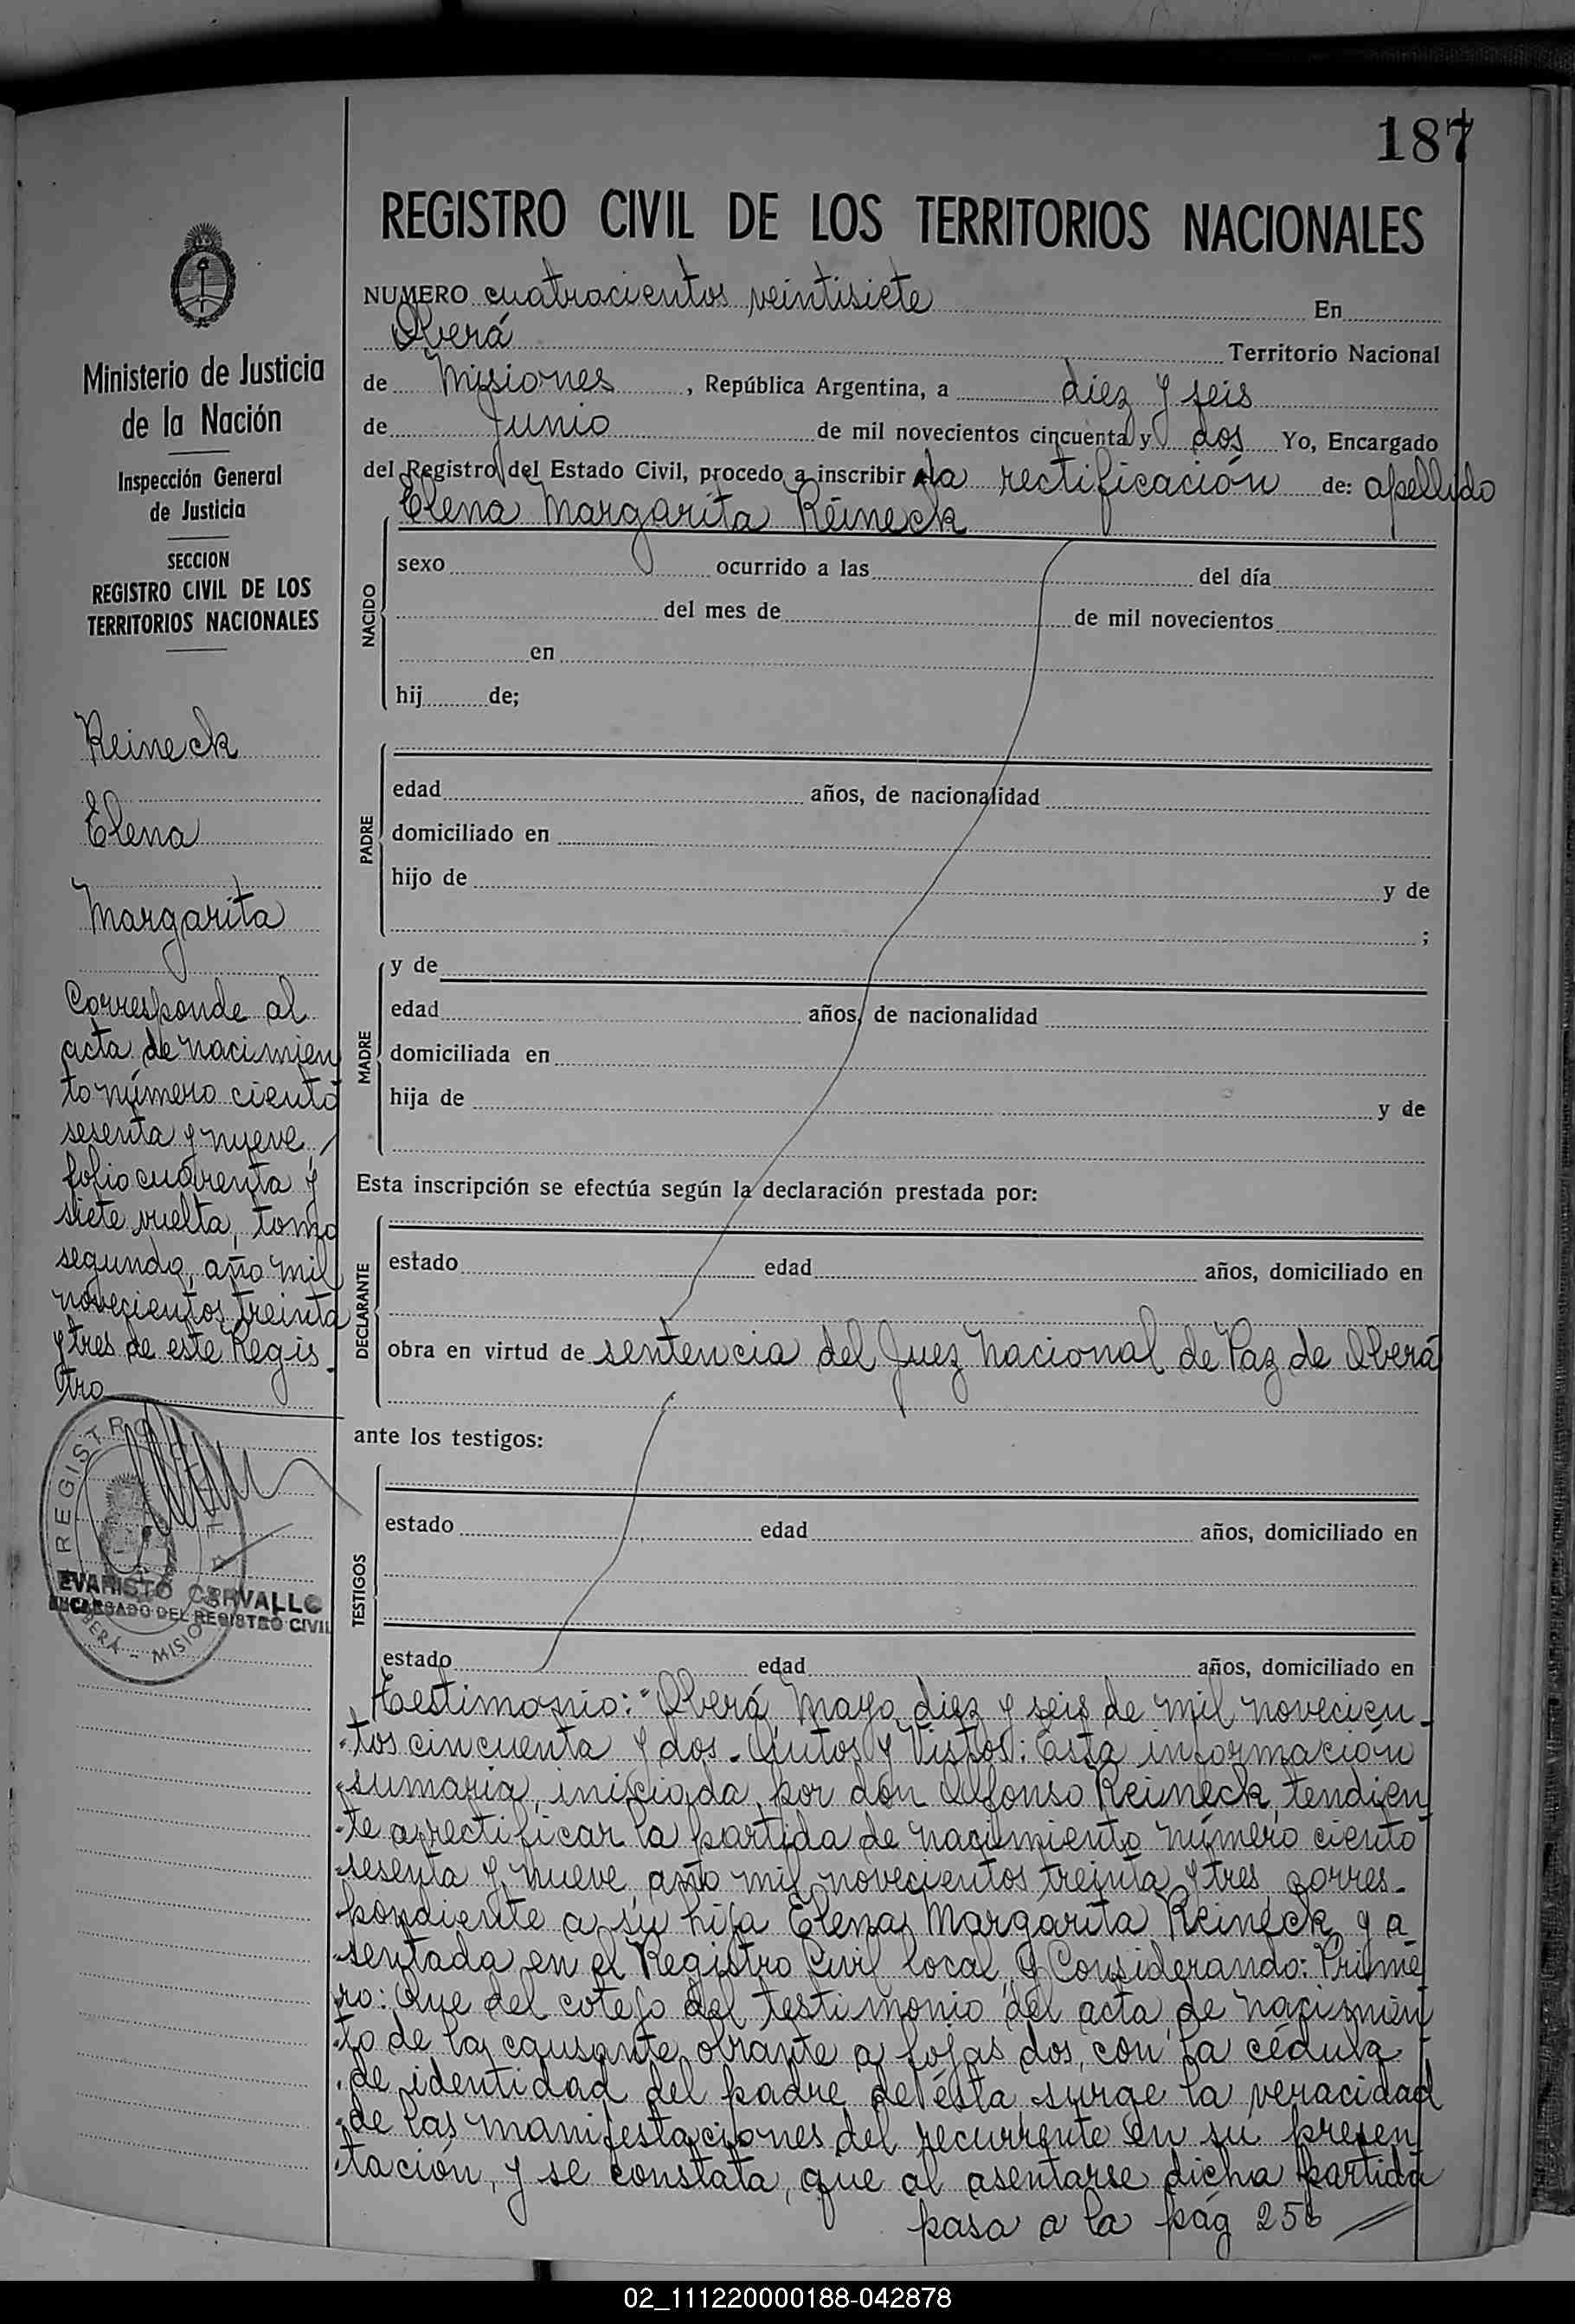 187
REGISTRO CIVIL DE LOS TERRITORIOS NACIONALES
NUMERO cuatrocientos veintisiete En
Oberá Territorio Nacional
de Misiones, República Argentina, a diez y seis
de Junio de mil novecientos cincuenta y dos Yo, Encargado
del Registro del Estado Civil, procedo a inscribir la rectificación de: apellido
Elena Margarita Reineck
NACIDO
sexo ocurrido a las del día
del mes de de mil novecientos
en
hij de;
PADRE
edad años, de nacionalidad
domiciliado en
hijo de y de
;
MADRE
y de
edad años, de nacionalidad
domiciliada en
hija de y de
Esta inscripción se efectúa según la declaración prestada por:
DECLARANTE
estado edad años, domiciliado en
obra en virtud de sentencia del Juez Nacional de Paz de Oberá
ante los testigos:
TESTIGOS
estado edad años, domiciliado en
estado edad años, domiciliado en
Testimonio: "Oberá, Mayo diez y seis de mil novecien-
"tos cincuenta y dos.- Autos y Vistos: Esta información
"sumaria, iniciada por don Alfonso Reineck, tendien
"te a rectificar la partida de nacimiento número ciento
"sesenta y nueve, año mil novecientos treinta y tres, corres-
"pondiente a su hija Elena Margarita Reineck y a
"sentada en el Registro Civil local, y Considerando: Prime
"ro: Que del cotejo del testimonio del acta de nacimien
"to de la causante obrante a fojas dos, con la cédula
"de identidad del padre de ésta surge la veracidad
"de las manifestaciones del recurrente en su presen
"tación, y se constata, que al asentarse dicha partida
pasa a la pág 256
Ministerio de Justicia
de la Nación
Inspección General
de Justicia
SECCION
REGISTRO CIVIL DE LOS
TERRITORIOS NACIONALES
Reineck
Elena
Margarita
Corresponde al
acta de nacimien
to número ciento
sesenta y nueve,
folio cuarenta y
siete vuelta, tomo
segundo, año mil
novecientos treinta
y tres de este Regis-
tro
REGISTRO
EVARISTO CARVALLO
ENCARGADO DEL REGISTRO CIVIL
OBERÁ - MISIONES
02_111220000188-042878